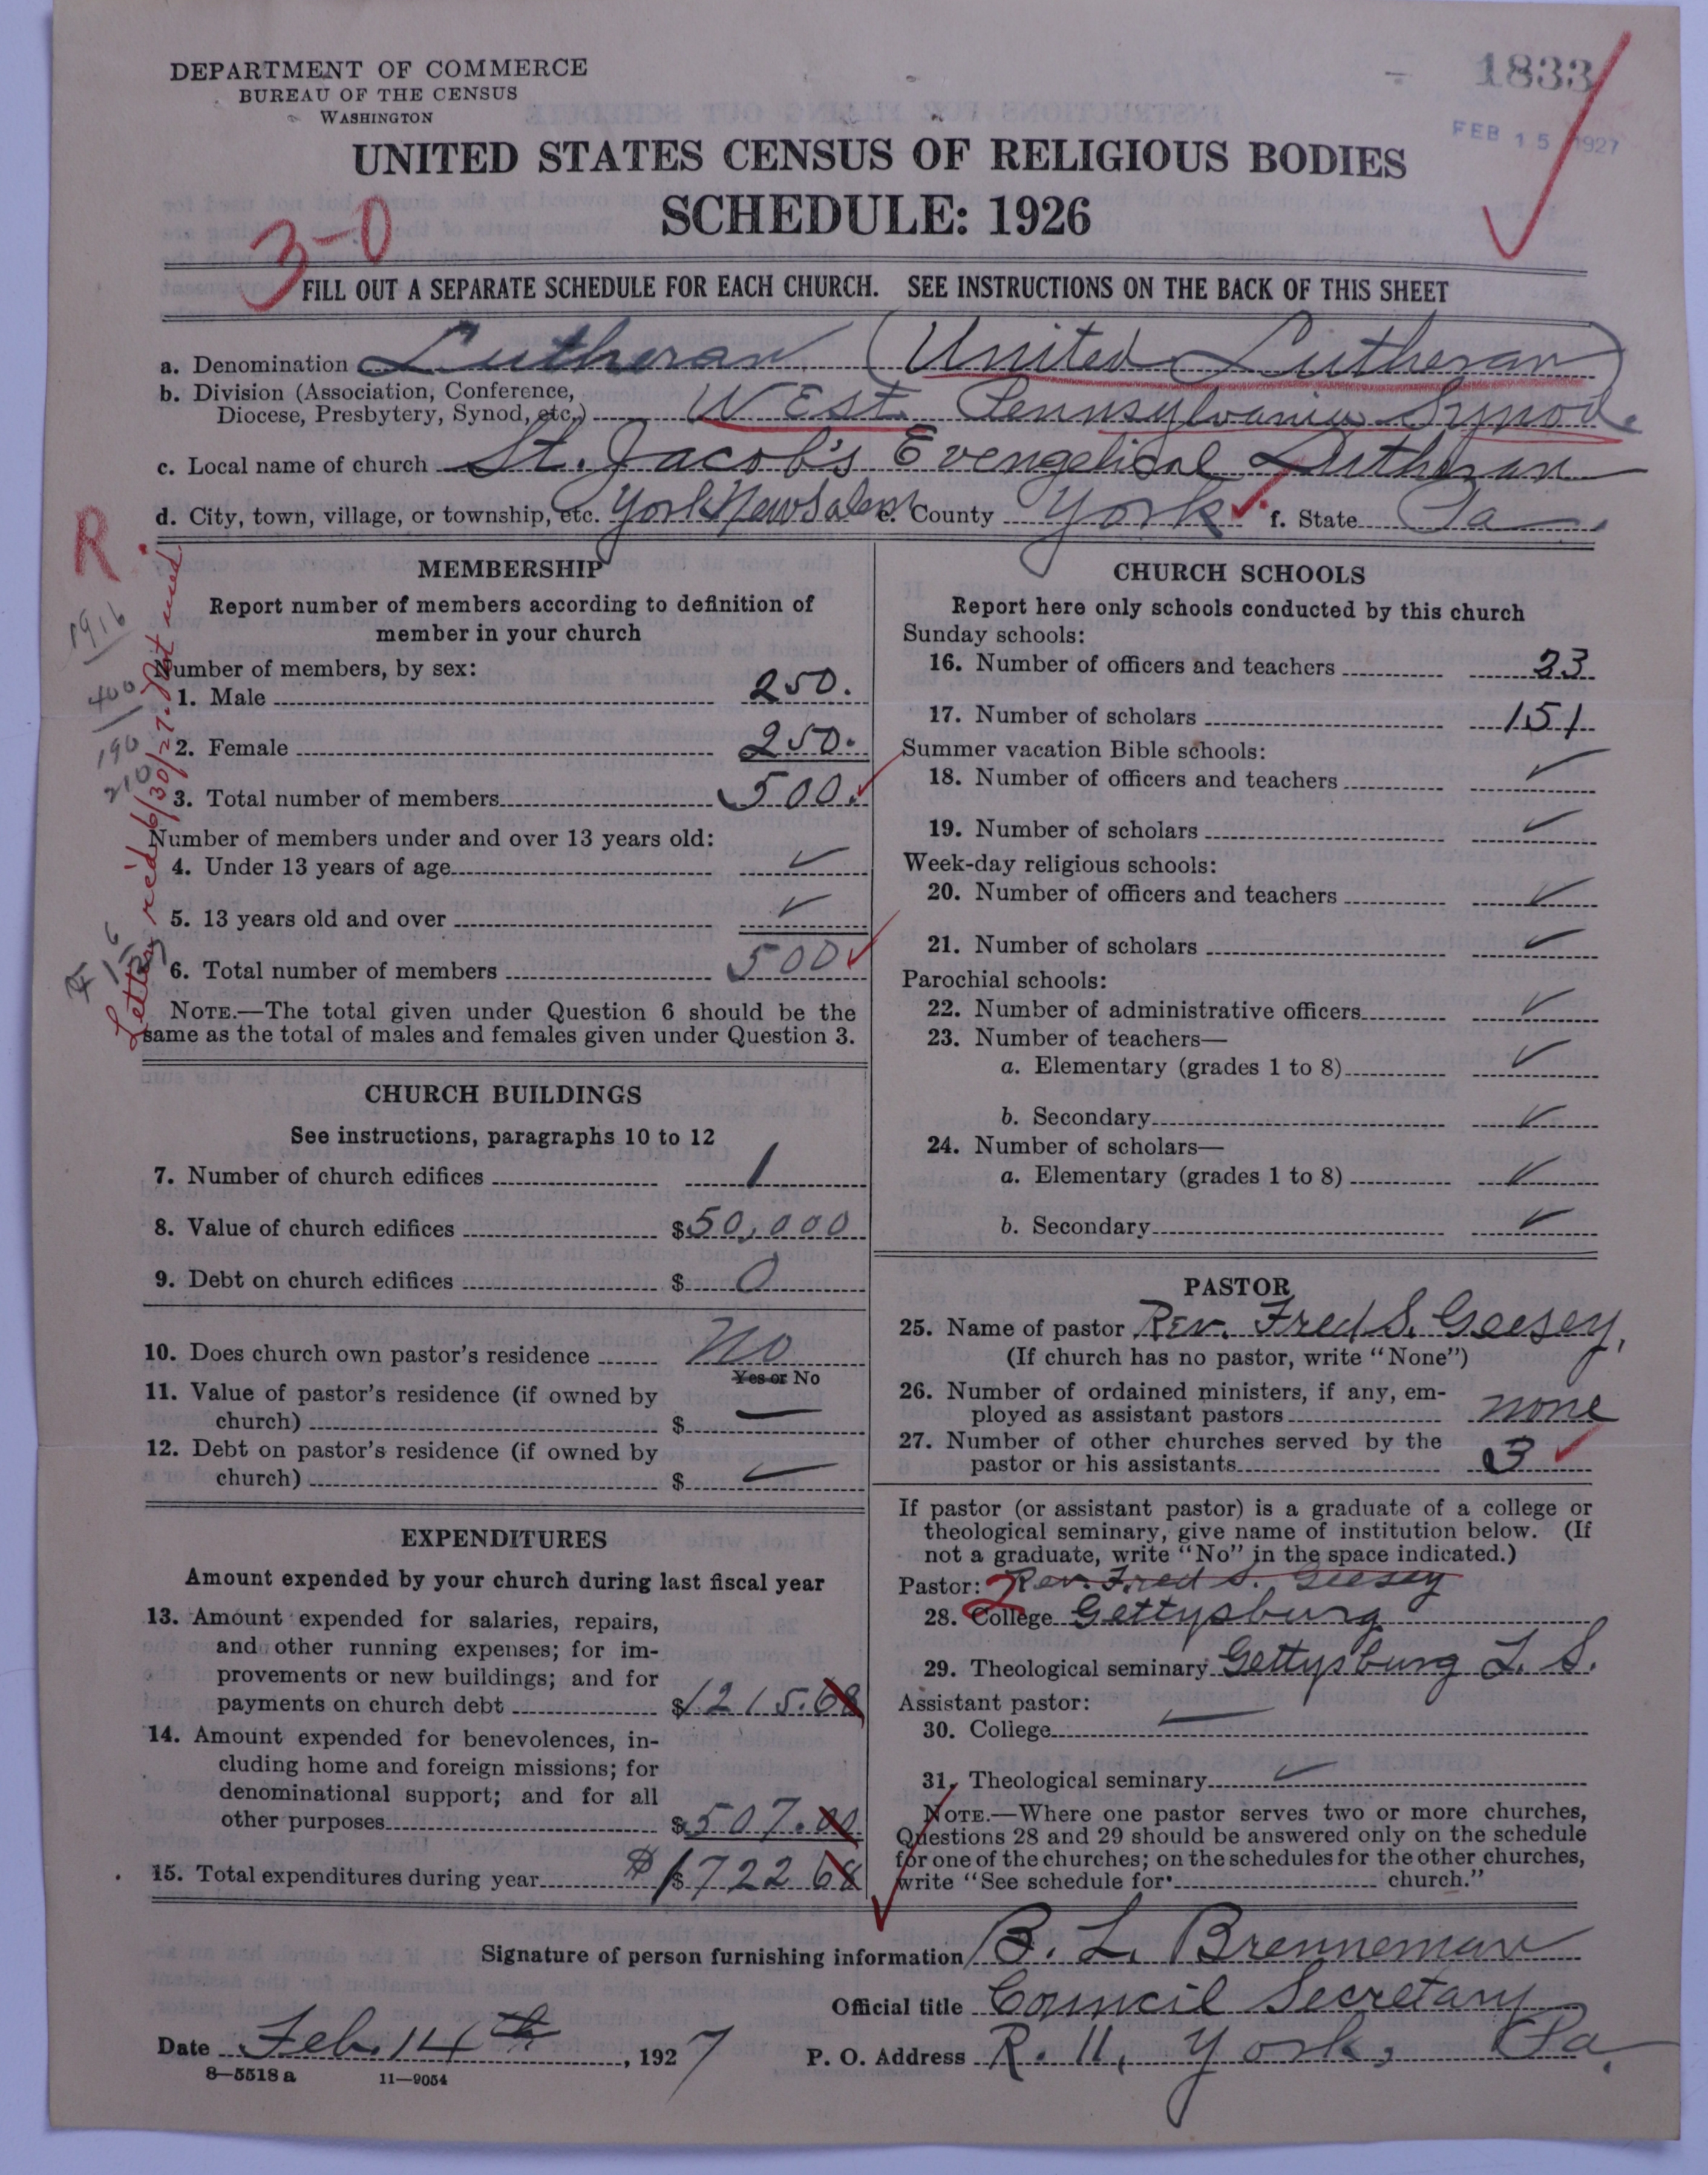 DEPARTMENT OF COMMERCE
BUREAU OF THE CENSUS
WASHINGTON
1833
FEB 15 1927
UNITED STATES CENSUS OF RELIGIOUS BODIES
SCHEDULE: 1926
3-0
FILL OUT A SEPARATE SCHEDULE FOR EACH CHURCH. SEE INSTRUCTIONS ON THE BACK OF THIS SHEET
a. Denomination Lutheran (United Lutheran)
b. Division (Association, Conference,
Diocese, Presbytery, Synod, etc.) West Pennsylvania Synod.
c. Local name of church St. Jacob's Evengelical Lutheran
d. City, town, village, or township, etc. York New Salem e. County York f. State Pa.
R.
1916
400
190
210
Letter rec'd 6/30/27. Not used
MEMBERSHIP
Report number of members according to definition of
member in your church
Number of members, by sex:
1. Male 250.
2. Female 250.
3. Total number of members 500.
Number of members under and over 13 years old:
4. Under 13 years of age ✓
5. 13 years old and over ✓
6. Total number of members 500
NOTE.—The total given under Question 6 should be the
same as the total of males and females given under Question 3.
CHURCH BUILDINGS
See instructions, paragraphs 10 to 12
7. Number of church edifices 1
8. Value of church edifices $50,000
9. Debt on church edifices $ 0
10. Does church own pastor's residence No
Yes or No
11. Value of pastor's residence (if owned by
church) $ —
12. Debt on pastor's residence (if owned by
church) $ ✓
EXPENDITURES
Amount expended by your church during last fiscal year
13. Amount expended for salaries, repairs,
and other running expenses; for im-
provements or new buildings; and for
payments on church debt $1215.68
14. Amount expended for benevolences, in-
cluding home and foreign missions; for
denominational support; and for all
other purposes $507.00
15. Total expenditures during year $1722 68
CHURCH SCHOOLS
Report here only schools conducted by this church
Sunday schools:
16. Number of officers and teachers 23
17. Number of scholars 151
Summer vacation Bible schools:
18. Number of officers and teachers ✓
19. Number of scholars ✓
Week-day religious schools:
20. Number of officers and teachers ✓
21. Number of scholars ✓
Parochial schools:
22. Number of administrative officers ✓
23. Number of teachers—
a. Elementary (grades 1 to 8) ✓
b. Secondary ✓
24. Number of scholars—
a. Elementary (grades 1 to 8) ✓
b. Secondary ✓
PASTOR
25. Name of pastor Rev. Fred S. Geesey,
(If church has no pastor, write "None")
26. Number of ordained ministers, if any, em-
ployed as assistant pastors none
27. Number of other churches served by the
pastor or his assistants 3
If pastor (or assistant pastor) is a graduate of a college or
theological seminary, give name of institution below. (If
not a graduate, write "No" in the space indicated.)
Pastor: 2 Rev. Fred S. Geesey
28. College Gettysburg
29. Theological seminary Gettysburg L. S.
Assistant pastor:
30. College —
31. Theological seminary ✓
NOTE.—Where one pastor serves two or more churches,
Questions 28 and 29 should be answered only on the schedule
for one of the churches; on the schedules for the other churches,
write "See schedule for church."
Signature of person furnishing information B. L. Brenneman
Official title Council Secretary
Date Feb. 14th, 1927 P. O. Address R. 11, York, Pa.
8—5518 a 11—9054